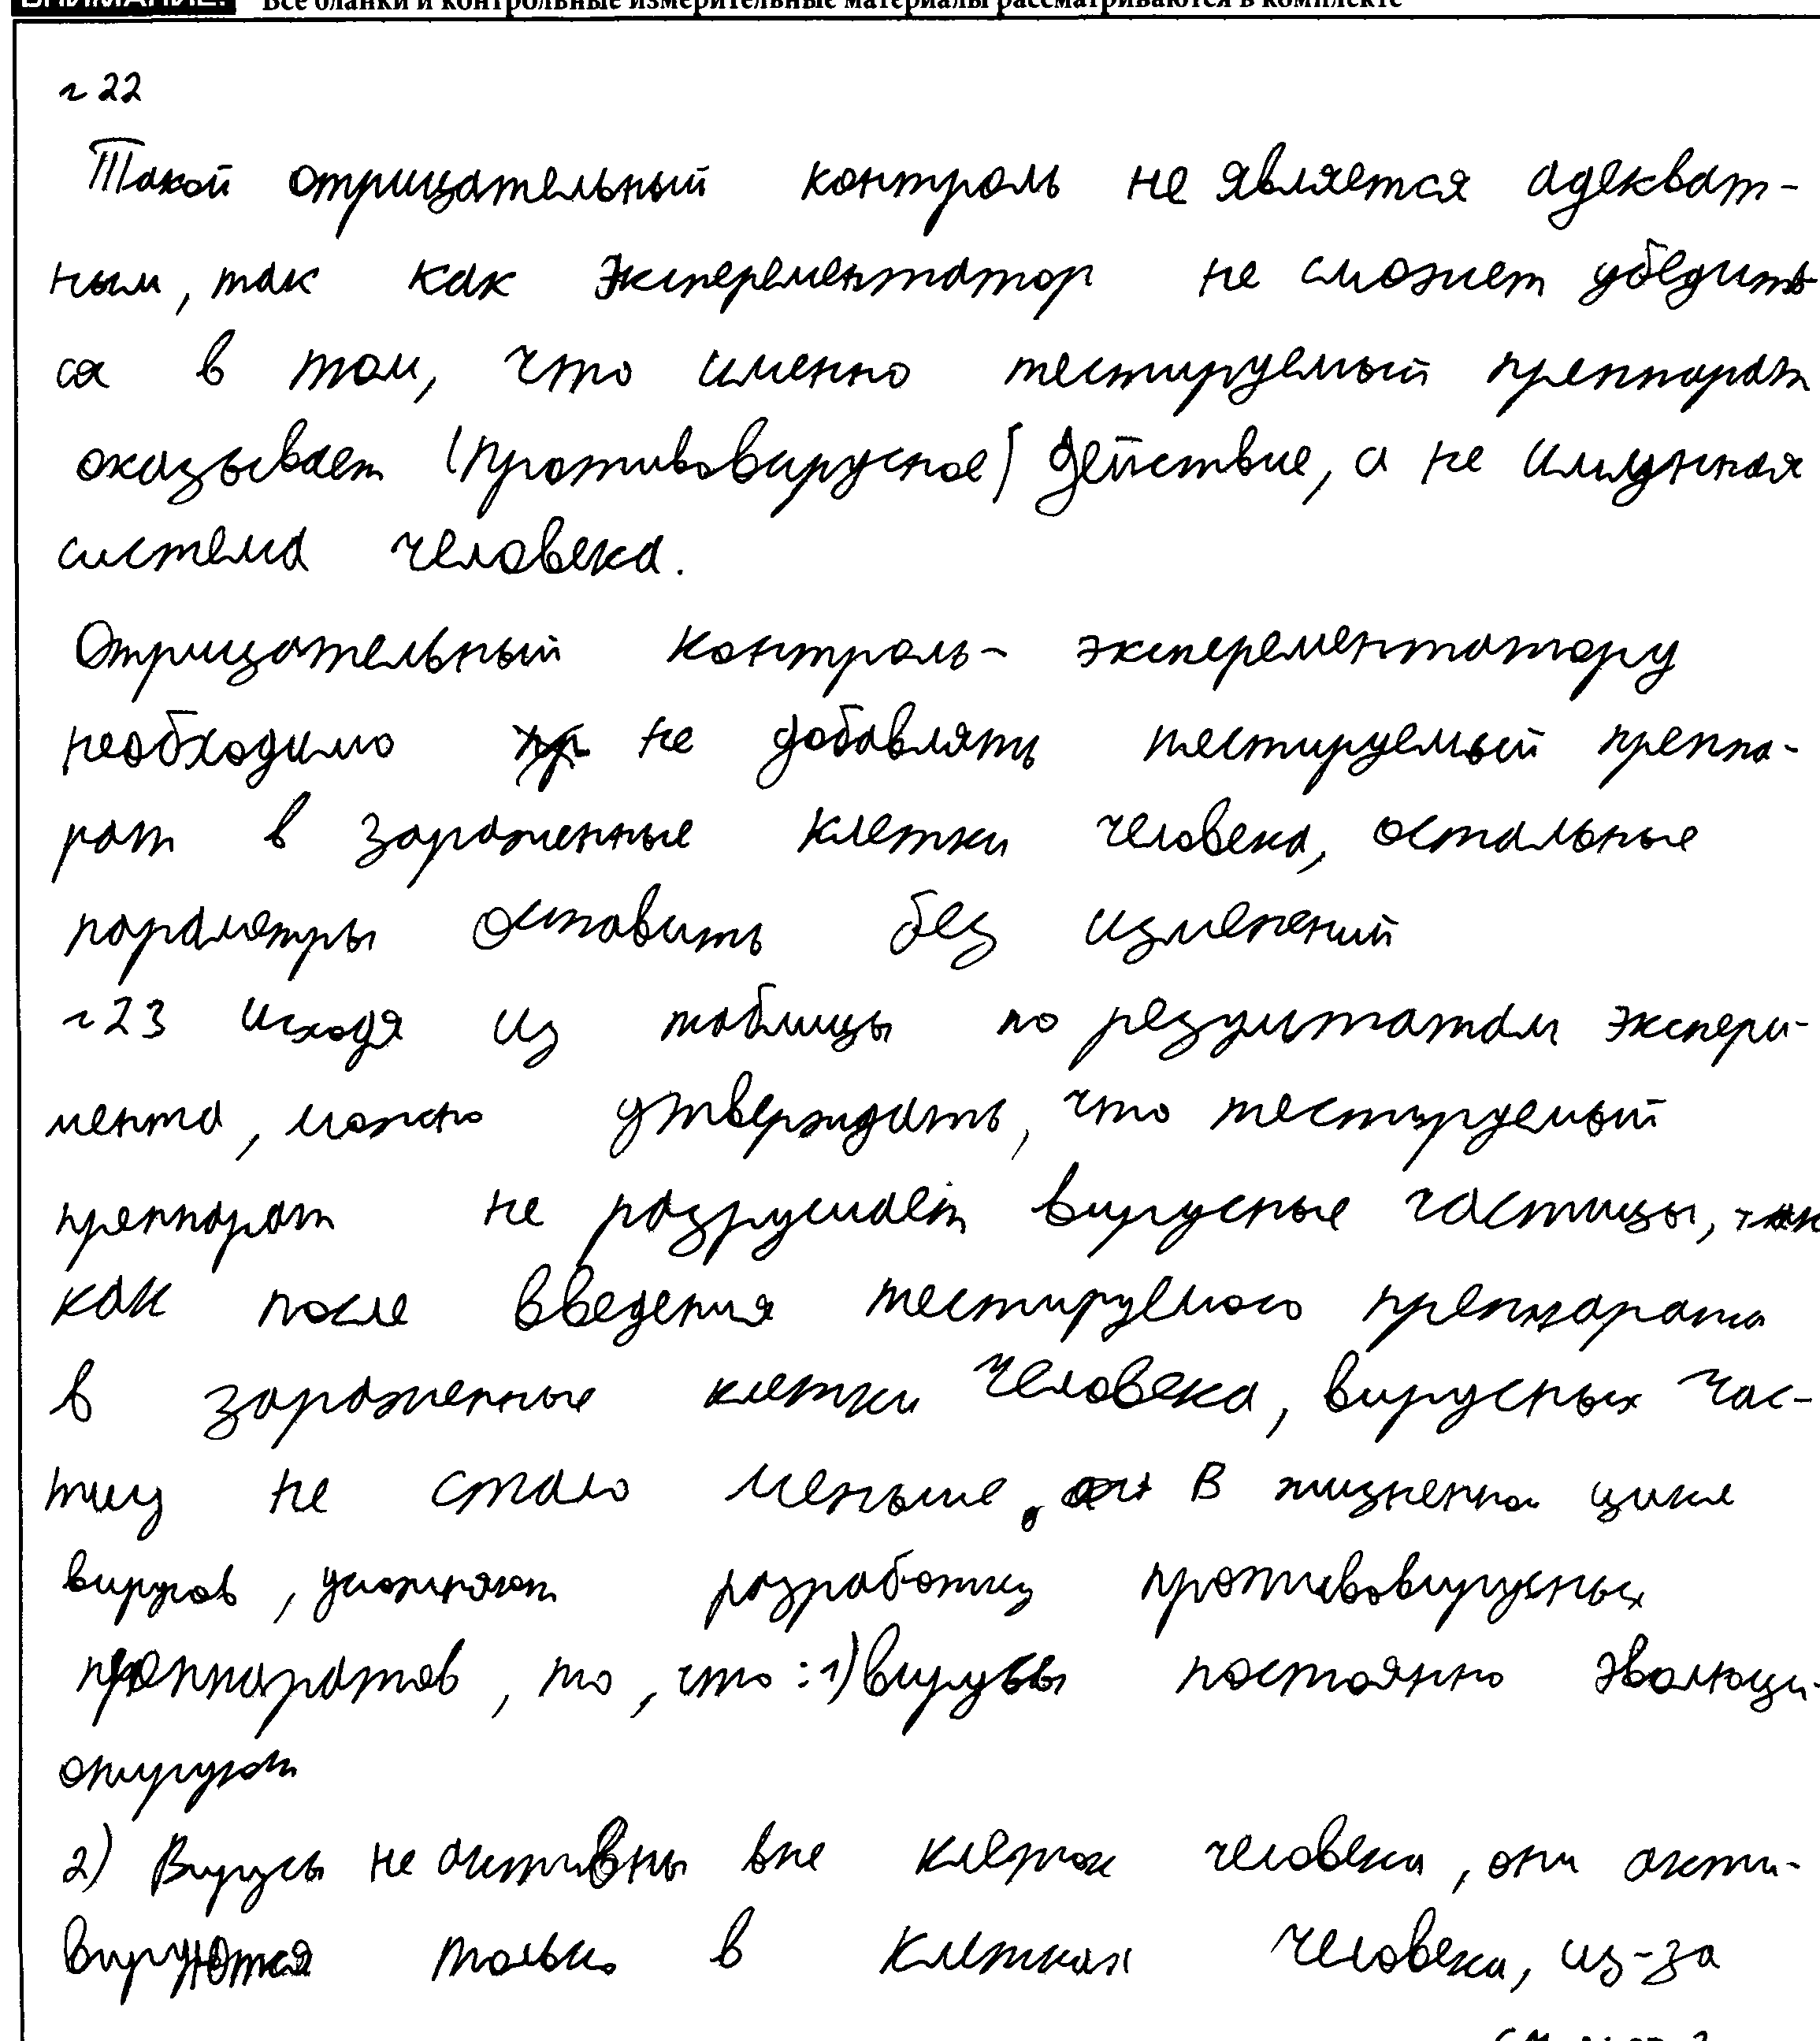 ВНИМАНИЕ! Все бланки и контрольные измерительные материалы рассматриваются в комплекте
№22
Такой отрицательный контроль не является адекват-
ным, так как эксперементатор не сможет убедить
ся в том, что именно тестируемый преппарат
оказывает (противовирусное) действие, а не имунная
система человека.
Отрицательный контроль- эксперементатору
необходимо не добавлять тестируемый преппа-
рат в зараженные клетки человека, остальные
параметры оставить без изменений
№23 Исходя из таблицы по результатам экспери-
мента, можно утверждать, что тестируемый
преппарат не разрушает вирусные частицы, так
как после введения тестируемого преппарата
в зараженные клетки человека, вирусных час-
тиц не стало меньше. В жизненном цикле
вирусов, усложняют разработку противовирусных
преппаратов, то, что: 1) вирусы постоянно эволюци-
онируют
2) Вирусы не активны вне клеток человека, они акти-
вируются только в клетках человека, из-за